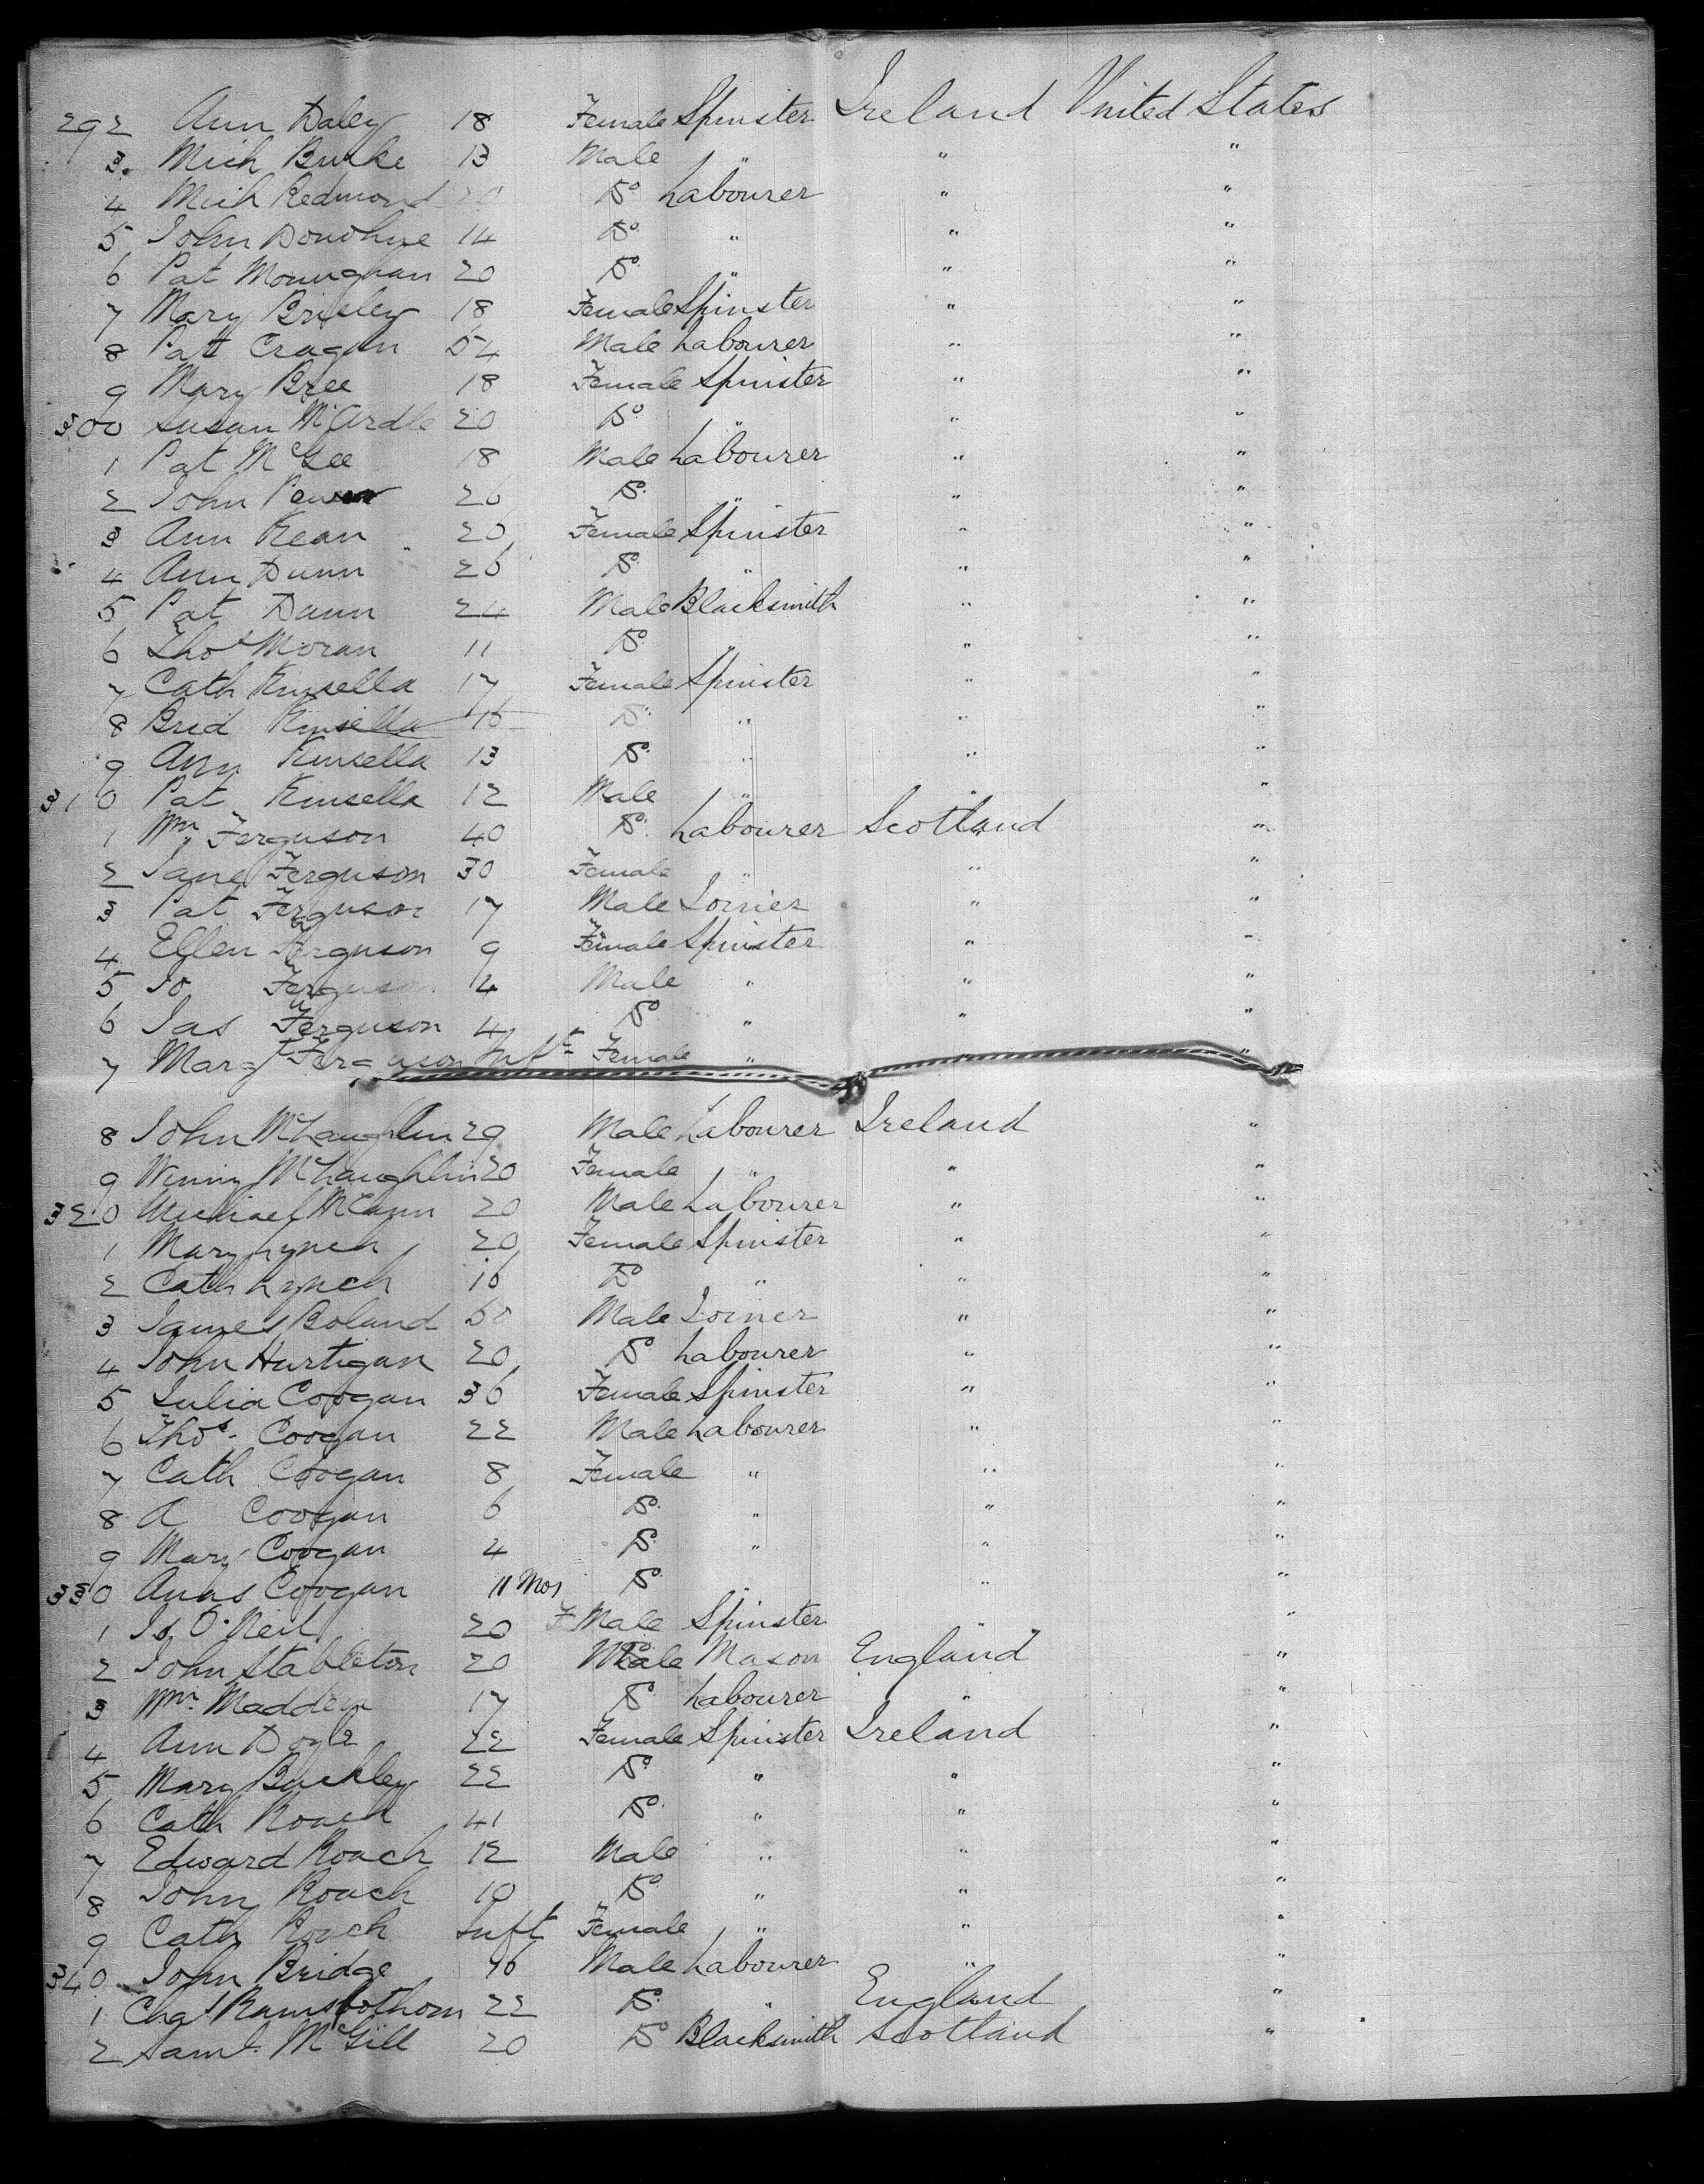 292 Ann Daley 18 Female Spinster Ireland United States
3 Mich Burke 13 Male " " "
4 Mich Redmond 20 Do Labourer " "
5 John Donohue 14 Do " " "
6 Pat Monughan 20 Do " " "
7 Mary Brisley 18 Female Spinster " "
8 Patt Cragin 54 Male Labourer " "
9 Mary Bree 18 Female Spinster " "
300 Susan McArdle 20 Do " " "
1 Pat McGee 18 Male Labourer " "
2 John Power 26 Do " " "
3 Ann Kean 20 Female Spinster " "
4 Ann Dunn 26 Do " " "
5 Pat Dunn 24 Male Blacksmith " "
6 Thos Moran 11 Do " " "
7 Cath Kinsella 17 Female Spinster " "
8 Brid Kinsella 16 Do " " "
9 Ann Kinsella 13 Do " " "
310 Pat Kinsella 12 Male " " "
1 Wm Ferguson 40 Do Labourer Scotland "
2 Jane Ferguson 30 Female " " "
3 Pat Ferguson 17 Male Joiner " "
4 Ellen Ferguson 9 Female Spinster " "
5 Jo Ferguson Male " " "
6 Jas Ferguson 4 Do " " "
7 Margt Ferguson Inft Female " "
8 John McLaughlin 29 Male Labourer Ireland "
9 Winny McLaughlin 20 Female " " "
320 Michael McCann 20 Male Labourer " "
1 Mary Lynch 20 Female Spinster " "
2 Cath Lynch 16 Do " " "
3 James Boland 50 Male Joiner " "
4 John Hartigan 20 Do Labourer " "
5 Julia Coogan 36 Female Spinster " "
6 Thos. Coogan 22 Male Labourer " "
7 Cath Coogan 8 Female " " "
8 A Coogan 6 Do " " "
9 Mary Coogan 4 Do " " "
330 Anas Coogan 11 Mos Do " " "
1 Js O'Neil 20 FMale Spinster " "
2 John Stableton 20 Male Mason England "
3 Wm. Madden 17 Do Labourer " "
4 Ann Doyle 22 Female Spinster Ireland "
5 Mary Buckley 22 Do " " "
6 Cath Roach 41 Do " " "
7 Edward Roach 12 Male " " "
8 John Roach 10 Do " " "
9 Cath Roach Inft Female " " "
340 John Bridge 46 Male Labourer " "
1 Chas Ramsbothom 22 Do " England "
2 Saml. McGill 20 Do Blacksmith Scotland "